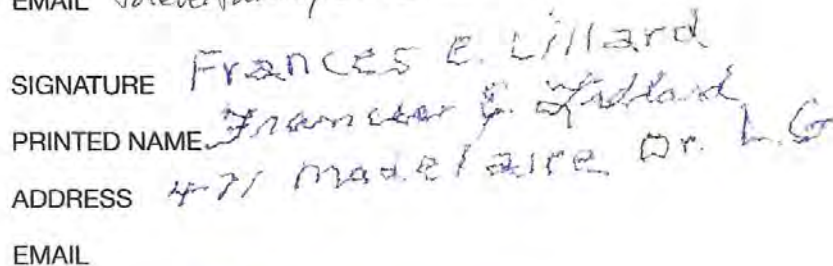 EMAIL
SIGNATURE Frances E. Lillard
PRINTED NAME Frances E. Lillard
ADDRESS 471 Madelaire Dr. L.G
EMAIL